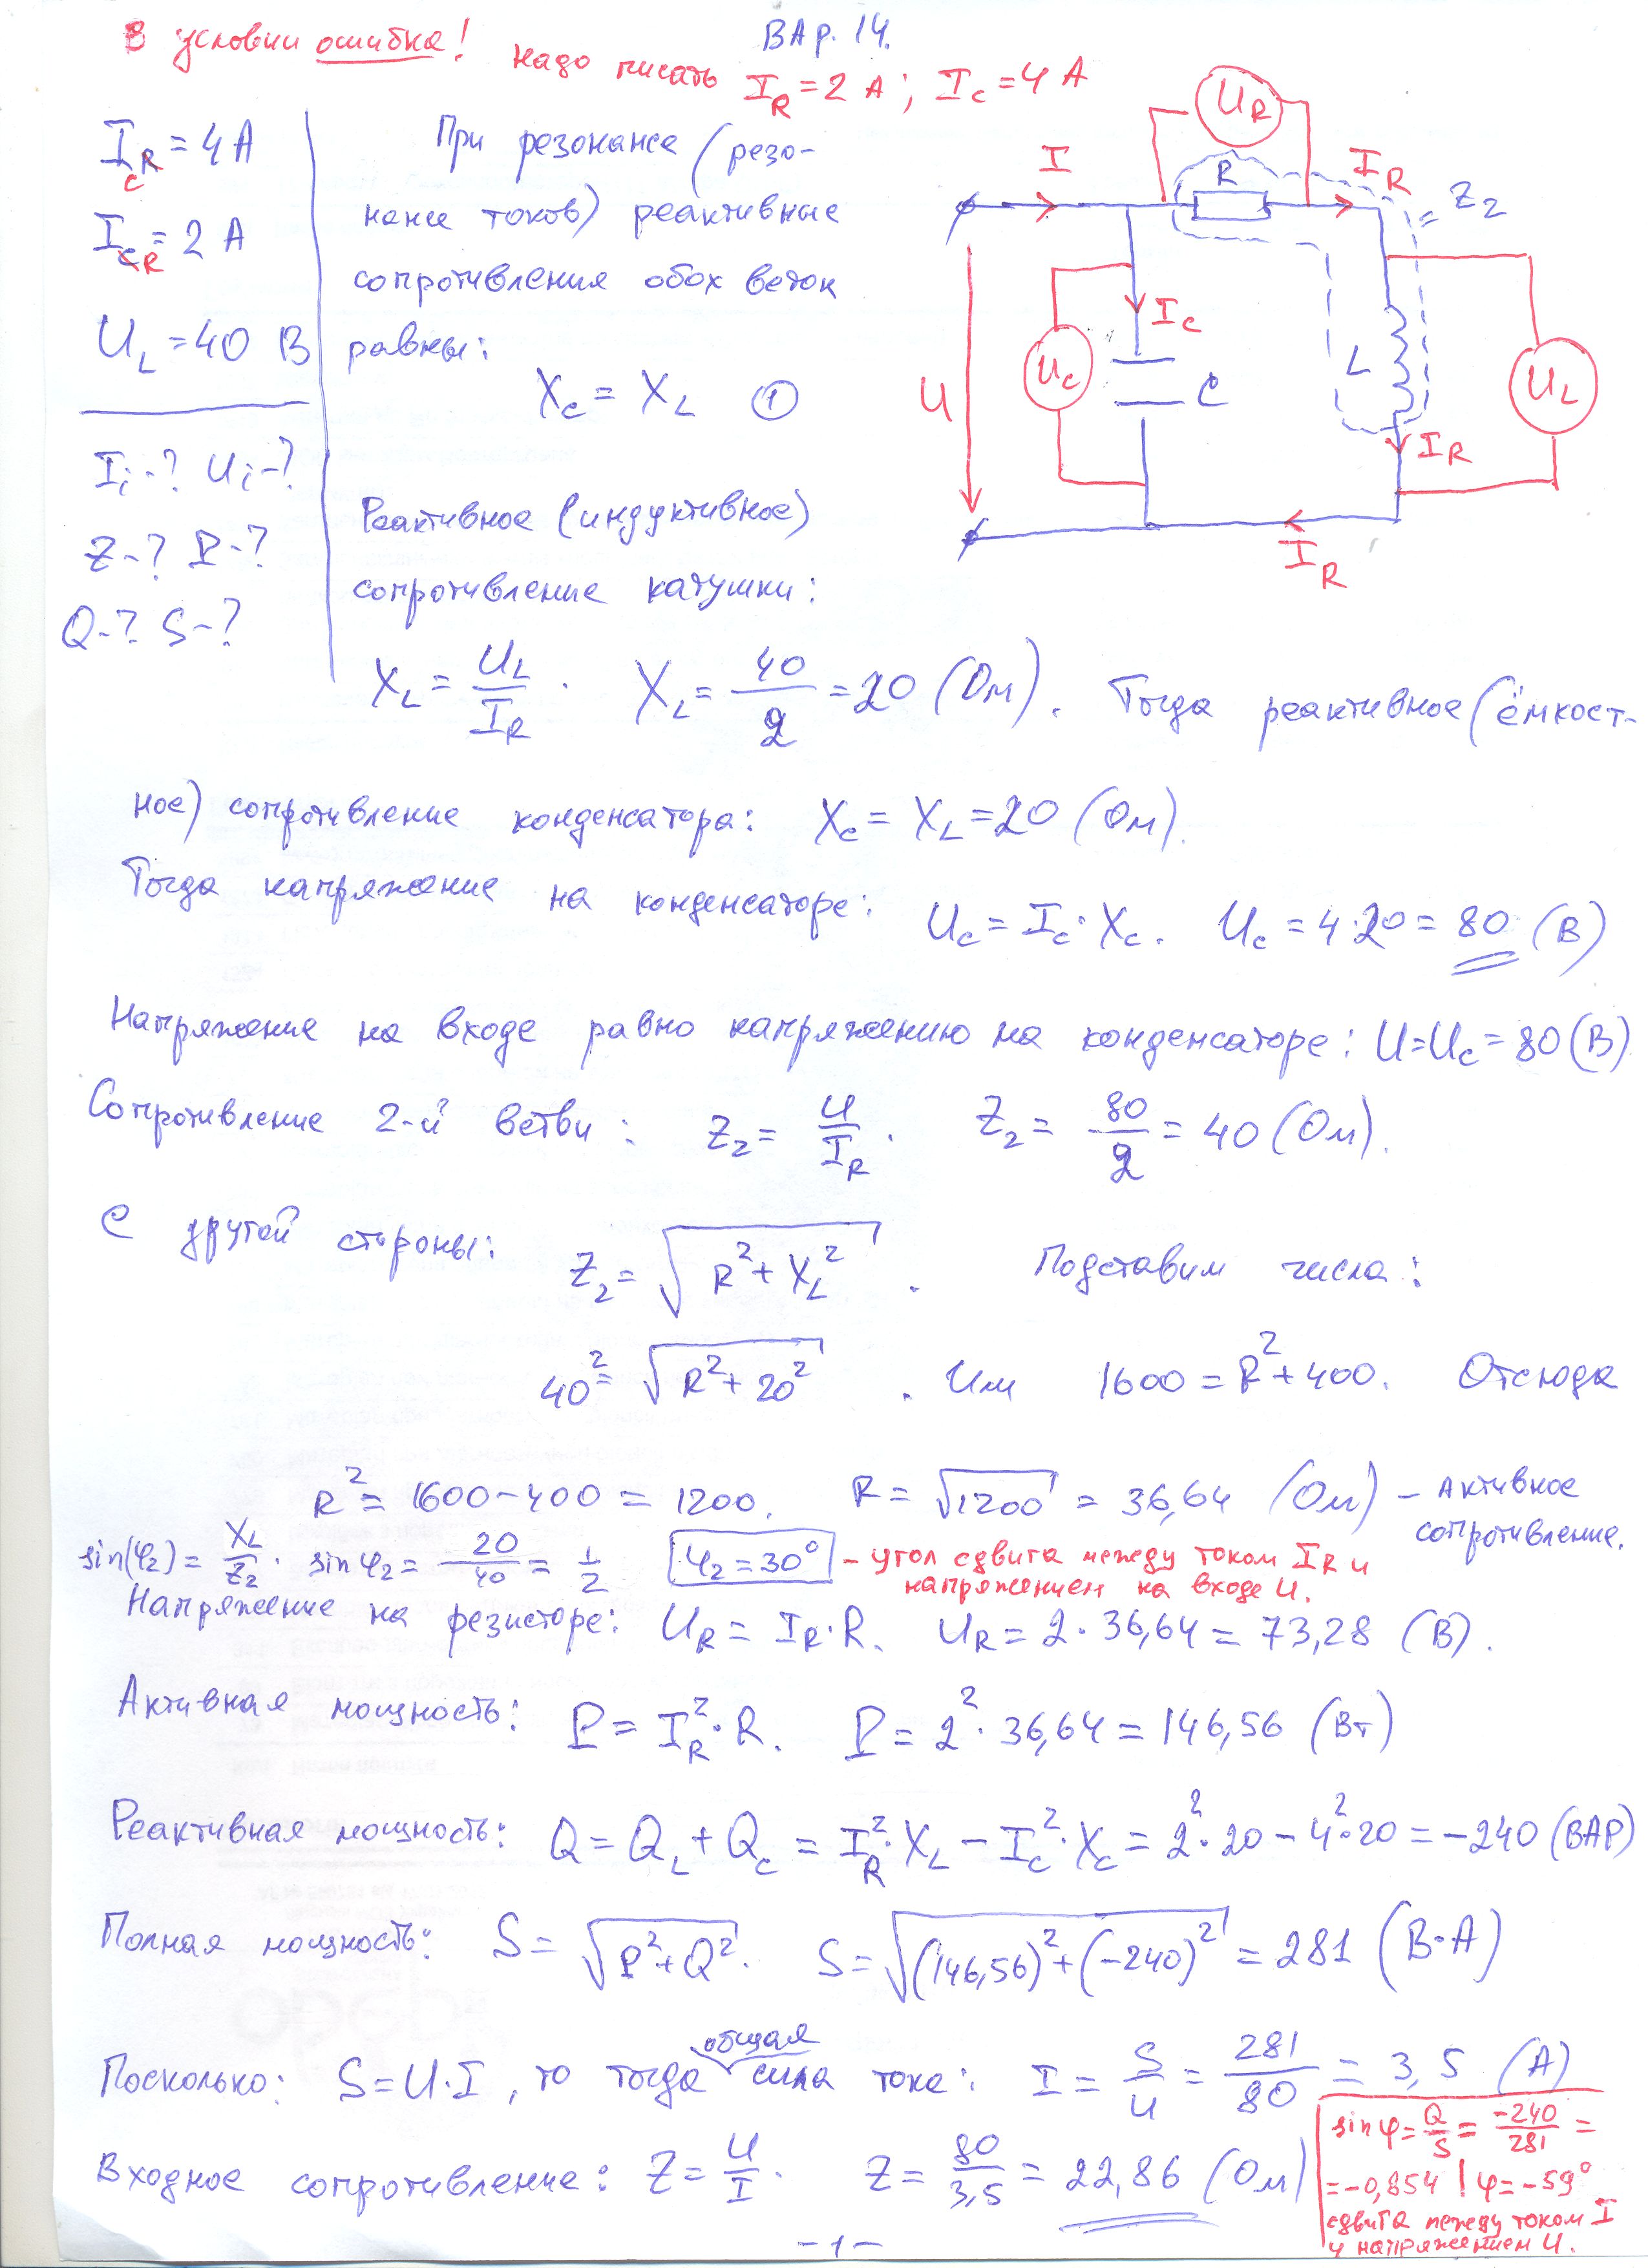 ВАр. 14.
В условии ошибка! надо писать I_R = 2 А; I_C = 4 А
I_R = 4 А
C
I_C = 2 А
R
U_L = 40 В
I_i -? U_i -?
Z -? P -?
Q -? S -?
При резонансе (резо-
нансе токов) реактивные
сопротивления обох веток
равны:
X_C = X_L ①
Реактивное (индуктивное)
сопротивление катушки:
U_R
I
R
I_R
= Z_2
I_C
U
U_C
C
L
U_L
I_R
I_R
X_L = U_L / I_R . X_L = 40 / 2 = 20 (Ом). Тогда реактивное (ёмкост-
ное) сопротивление конденсатора: X_C = X_L = 20 (Ом).
Тогда напряжение на конденсаторе: U_C = I_C · X_C. U_C = 4·20 = 80 (В)
Напряжение на входе равно напряжению на конденсаторе: U = U_C = 80 (В)
Сопротивление 2-й ветви: Z_2 = U / I_R . Z_2 = 80 / 2 = 40 (Ом).
С другой стороны: Z_2 = √(R² + X_L²) . Подставим числа:
40² = √(R² + 20²) . Или 1600 = R² + 400. Отсюда
R² = 1600 - 400 = 1200. R = √1200 = 36,64 (Ом) - Активное
сопротивление.
sin(φ_2) = X_L / Z_2 . sin φ_2 = 20 / 40 = 1 / 2 φ_2 = 30° - угол сдвига между током I_R и
напряжением на входе U.
Напряжение на резисторе: U_R = I_R · R. U_R = 2 · 36,64 = 73,28 (В).
Активная мощность: P = I_R² · R. P = 2² · 36,64 = 146,56 (Вт)
Реактивная мощность: Q = Q_L + Q_C = I_R² · X_L - I_C² · X_C = 2² · 20 - 4² · 20 = -240 (ВАР)
Полная мощность: S = √(P² + Q²) . S = √((146,56)² + (-240)²) = 281 (В·А)
Посколько: S = U·I, то тогда общая сила тока: I = S / U = 281 / 80 = 3,5 (А)
Входное сопротивление: Z = U / I . Z = 80 / 3,5 = 22,86 (Ом)
sin φ = Q / S = -240 / 281 =
= -0,854 | φ = -59°
сдвига между током I
и напряжением U.
- 1 -